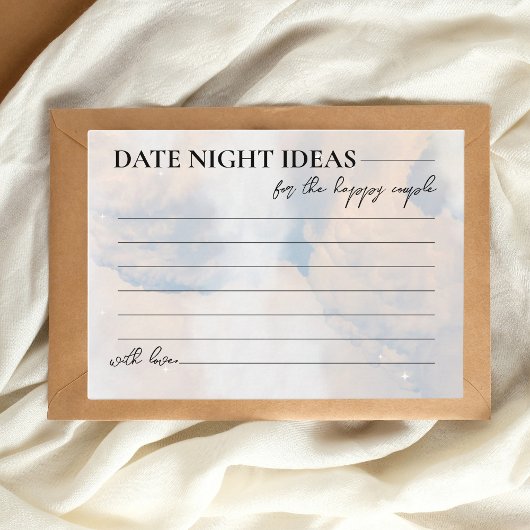 DATE NIGHT IDEAS
for the happy couple
with love,